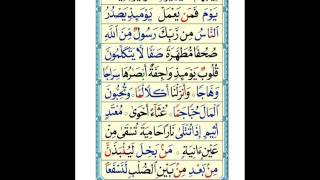 يَوْمَ فَمَنْ يَعْمَلْ يَوْمَئِذٍ يَصْدُرُ
النَّاسُ مِنْ رَبِّكَ رَسُولٌ مِنَ اللّٰهِ
صُحُفًا مُطَهَّرَةً صَفًّا لَا يَتَكَلَّمُونَ
قُلُوبٌ يَوْمَئِذٍ وَاجِفَةٌ أَبْصَارُهَا سِرَاجًا
وَهَّاجًا وَأَنْزَلْنَا أَكْلًا لَمًّا وَتُحِبُّونَ
الْمَالَ حُبًّا جَمًّا غُثَاءً أَحْوٰى مُعْتَدٍ
أَثِيمٍ إِذَا تُتْلٰى نَارًا حَامِيَةً تُسْقٰى مِنْ
عَيْنٍ اٰنِيَةٍ مَنْ بَخِلَ لَيُنْبَذَنَّ
مِنْ بَعْدِ مِنْ بَيْنِ الصُّلْبِ لَنَسْفَعًا